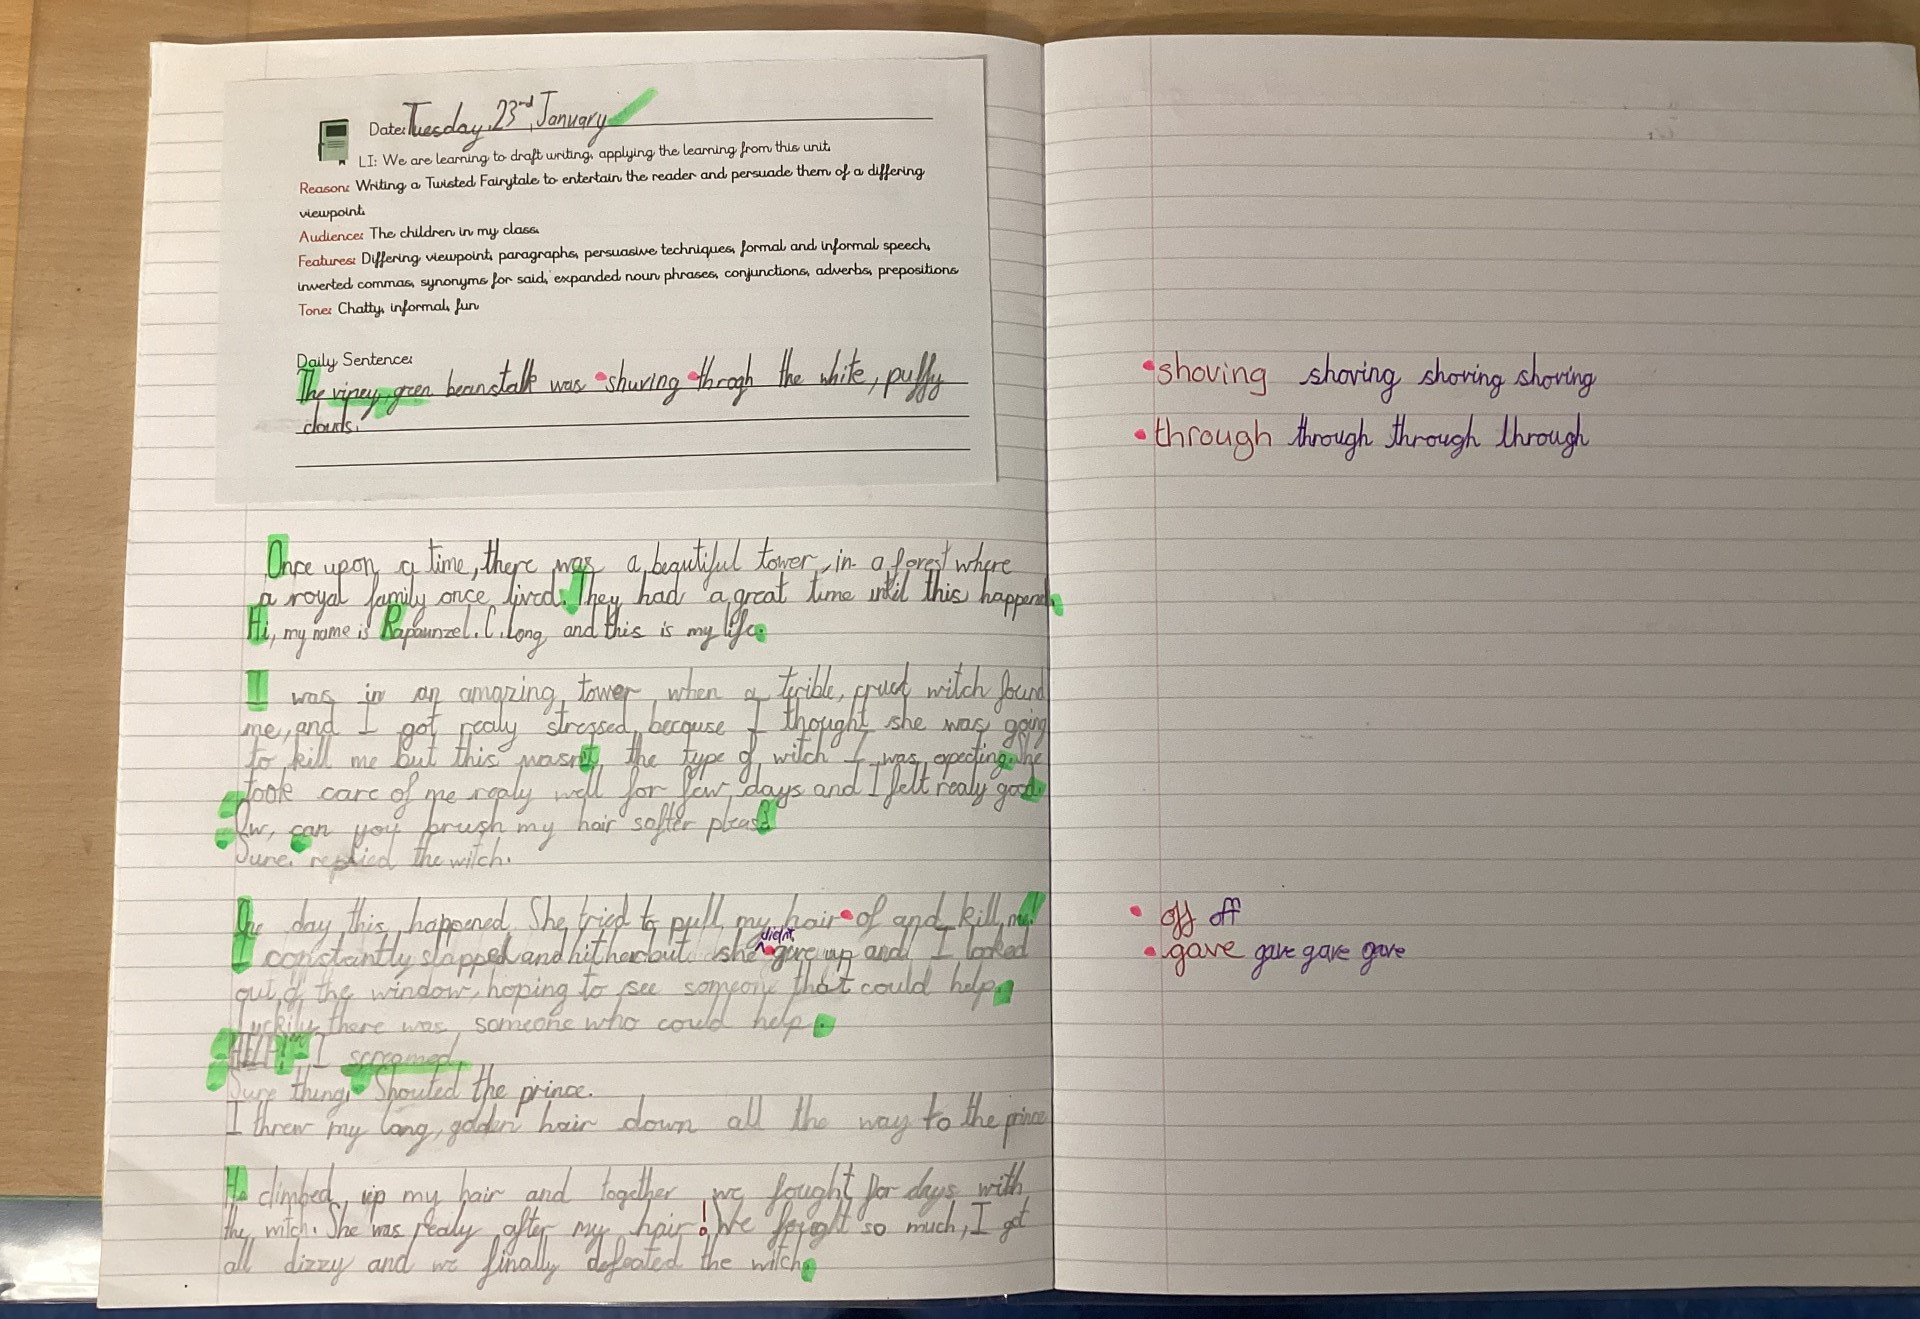 Date: Tuesday, 23rd, January
LI: We are learning to draft writing, applying the learning from this unit.
Reason: Writing a Twisted Fairytale to entertain the reader and persuade them of a differing
viewpoint.
Audience: The children in my class.
Features: Differing viewpoint, paragraphs, persuasive techniques, formal and informal speech,
inverted commas, synonyms for said, expanded noun phrases, conjunctions, adverbs, prepositions
Tone: Chatty, informal, fun
Daily Sentence:
The viney, green beanstalk was shuving throgh the white, puffy
clouds.
Once upon a time, there was a beautiful tower, in a forest where
a royal family once lived. They had a great time until this happend.
Hi, my name is Rapaunzel. C. Long and this is my life.
I was in an amazing tower when a terible, cruel witch found
me, and I got realy stressed because I thought she was going
to kill me but this wasn't the type of witch I was, expecting. She
took care of me realy well for few days and I felt realy good.
"Ow, can you brush my hair softer please?"
"Sure." replied the witch.
One day this happened. She tried to pull my hair of and kill me!
I constantly slapped and hit her but she didn't give up and I looked
out of the window, hoping to see someone that could help.
Luckily, there was someone who could help.
"HELP!!" I screamed.
"Sure thing," Shouted the prince.
I threw my long, golden hair down all the way to the prince
He climbed up my hair and together we fought for days with
the witch. She was really after my hair! We fought so much, I got
all dizzy and we finally defeated the witch.
shoving shoving shoving shoving
through through through through
off off
gave gave gave gave